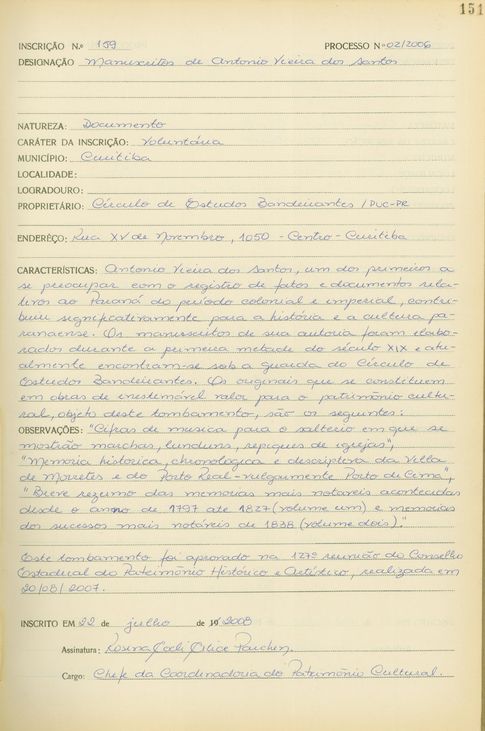 151
INSCRIÇÃO N.º 159 PROCESSO Nº 02/2006
DESIGNAÇÃO Manuscritos de Antonio Vieira dos Santos
NATUREZA: Documento
CARÁTER DA INSCRIÇÃO: Voluntária
MUNICÍPIO: Curitiba
LOCALIDADE:
LOGRADOURO:
PROPRIETÁRIO: Círculo de Estudos Bandeirantes / PUC-PR
ENDERÊÇO: Rua XV de Novembro, 1050 - Centro - Curitiba
CARACTERÍSTICAS: Antonio Vieira dos Santos, um dos primeiros a
se preocupar com o registro de fatos e documentos rela-
tivos ao Paraná do período colonial e imperial, contri-
buiu significativamente para a história e a cultura pa-
ranaense. Os manuscritos de sua autoria foram elabo-
rados durante a primeira metade do século XIX e atu-
almente encontram-se sob a guarda do Círculo de
Estudos Bandeirantes. Os originais que se constituem
em obras de inestimável valor para o patrimônio cultu-
ral, objeto deste tombamento, são os seguintes:
OBSERVAÇÕES: "Cifras de musica para o salterio em que se
mostrão marchas, lunduns, repiques de igrejas",
"Memoria historica, chronologica e descriptiva da Villa
de Morretes e do Porto Real - vulgarmente Porto de Cima",
"Breve rezumo das memorias mais notaveis acontecidas
desde o anno de 1797 até 1827 (volume um) e memorias
dos sucessos mais notáveis de 1838 (volume dois)."
Este tombamento foi aprovado na 127ª reunião do Conselho
Estadual do Patrimônio Histórico e Artístico, realizada em
20/08/2007.
INSCRITO EM 22 de julho de 19/2008
Assinatura: Rosina
Cargo: Chefe da Coordenadoria do Patrimônio Cultural.